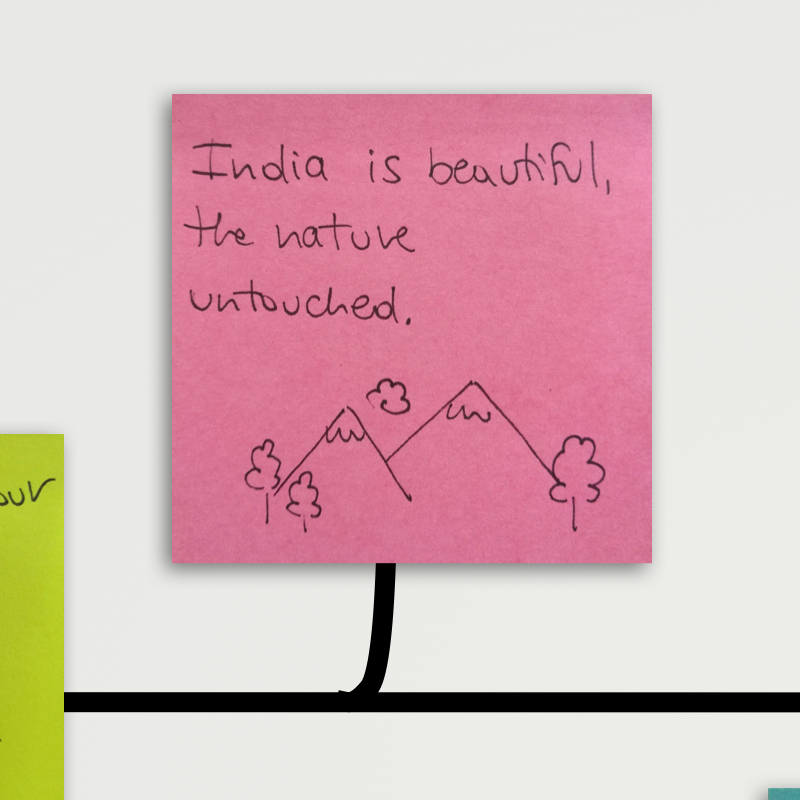 India is beautiful,
the nature
untouched.
our